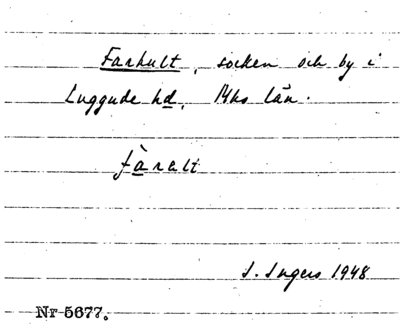 Farhult, socken och by i
Luggude hd, Mhs län.
fàralt
I. Ingers 1948
Nr 5677.